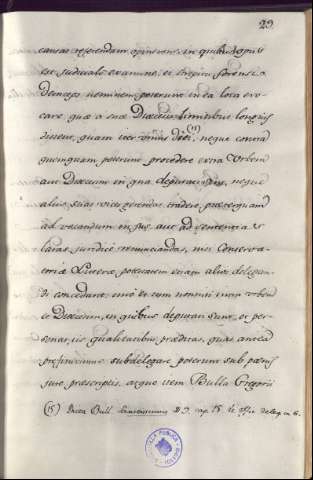 29.
causas referendam opinemur, in quibus opus
est Judiciali examine, et strepitu forensi
Deinceps neminem poterunt in ea loca evo-
care quae a suae Dioecesis liminibus longius
distent, quam iter unius diei, neque contra
quemquam poterunt procedere extra Urbem
aut Dioecesim in qua deputati sunt, neque
aliis suas vices gerendas tradere, praeterquam
ad vocandum in jus, aut ad sententias
latas juridicè renunciandas, nisi Conserva-
toriae Literae potestatem etiam aliis delegan-
di concedant: imò et eum nonnisi intra Urbem
et Dioecesim, in quibus deputati sunt, et per-
sonas, iis qualitatibus praeditas, quas antea
praefinivimus subdelegare poterunt sub poenis
jure praescriptis, atque item Bulla Gregorii
(15) Dicta Bull. § 9. cap. 15. de offic. deleg. in 6.